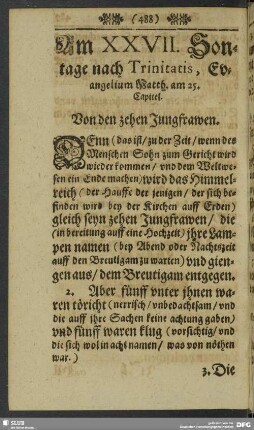 (488)
Am XXVII. Son-
tage nach Trinitatis, Ev-
angelium Matth. am 25.
Capitel.
Von den zehen Jungfrawen.
DEnn (das ist / zu der Zeit / wenn des
Menschen Sohn zum Gericht wird
wieder kommen / vnd dem Weltwe-
sen ein Ende machen) wird das Himmel-
reich (der Hauffe der jenigen / der sich be-
finden wird bey der Kirchen auff Erden)
gleich seyn zehen Jungfrawen / die
(in bereitung auff eine Hochzeit) jhre Lam-
pen namen (bey Abend oder Nachtszeit
auff den Breutigam zu warten) vnd gien-
gen aus / dem Breutigam entgegen.
2. Aber fünff vnter jhnen wa-
ren töricht (nerrisch / vnbedachtsam / vnd
die auff jhre Sachen keine achtung gaben)
vnd fünff waren klug (vorsichtig / vnd
die sich wol in acht namen / was von nöthen
war.)
3. Die
SLUB
DFG